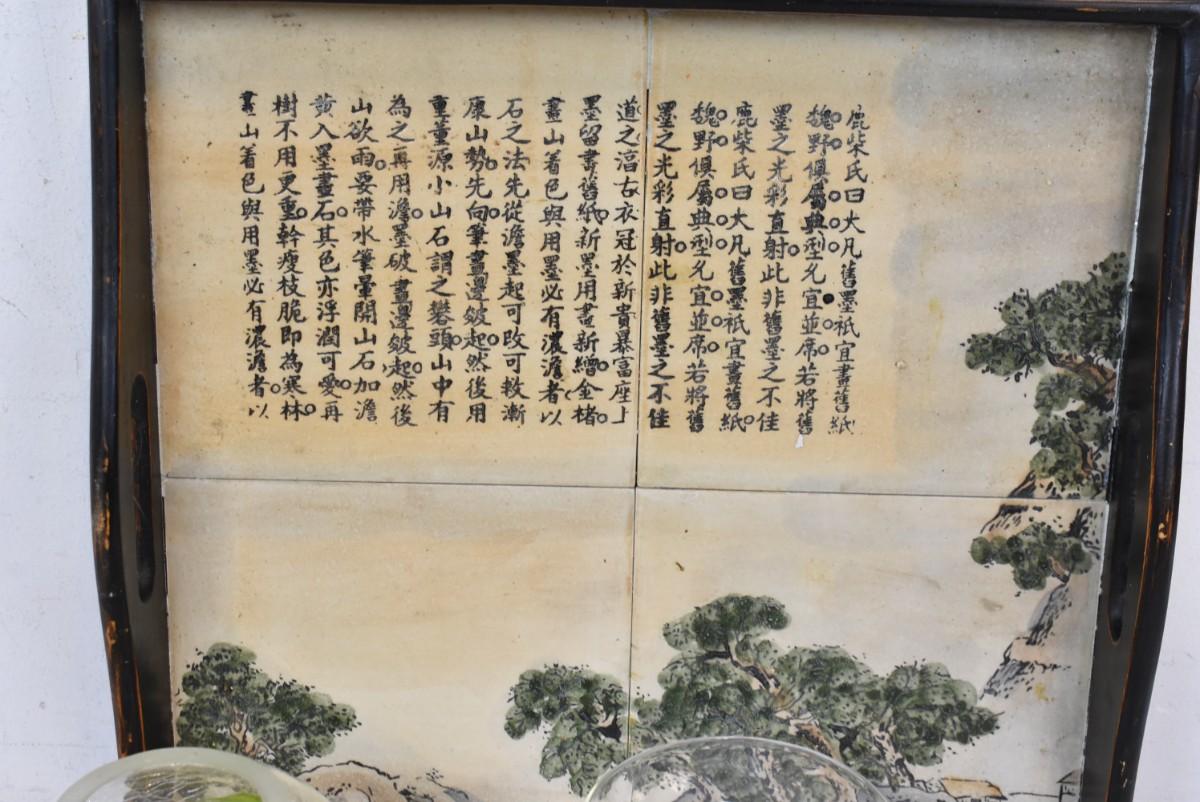 鹿柴氏曰大凡舊墨祇宜畫舊紙
魏野俱屬典型允宜並席若將舊
墨之光彩直射此非舊墨之不佳
鹿柴氏曰大凡舊墨祇宜畫舊紙
魏野俱屬典型允宜並席若將舊
墨之光彩直射此非舊墨之不佳
道之湻古衣冠於新貴暴富座上
墨留畫舊紙新墨用畫新繒金楮
畫山着色與用墨必有濃澹者以
石之法先從澹墨起可改可救漸
康山勢先向筆畫邊皴起然後用
重董源小山石謂之礬頭山中有
為之再用澹墨破畫邊皴起然後
山欲雨要帶水筆暈開山石加澹
黄入墨畫石其色亦浮潤可愛再
樹不用更重幹瘦枝脆即為寒林
畫山着色與用墨必有濃澹者以